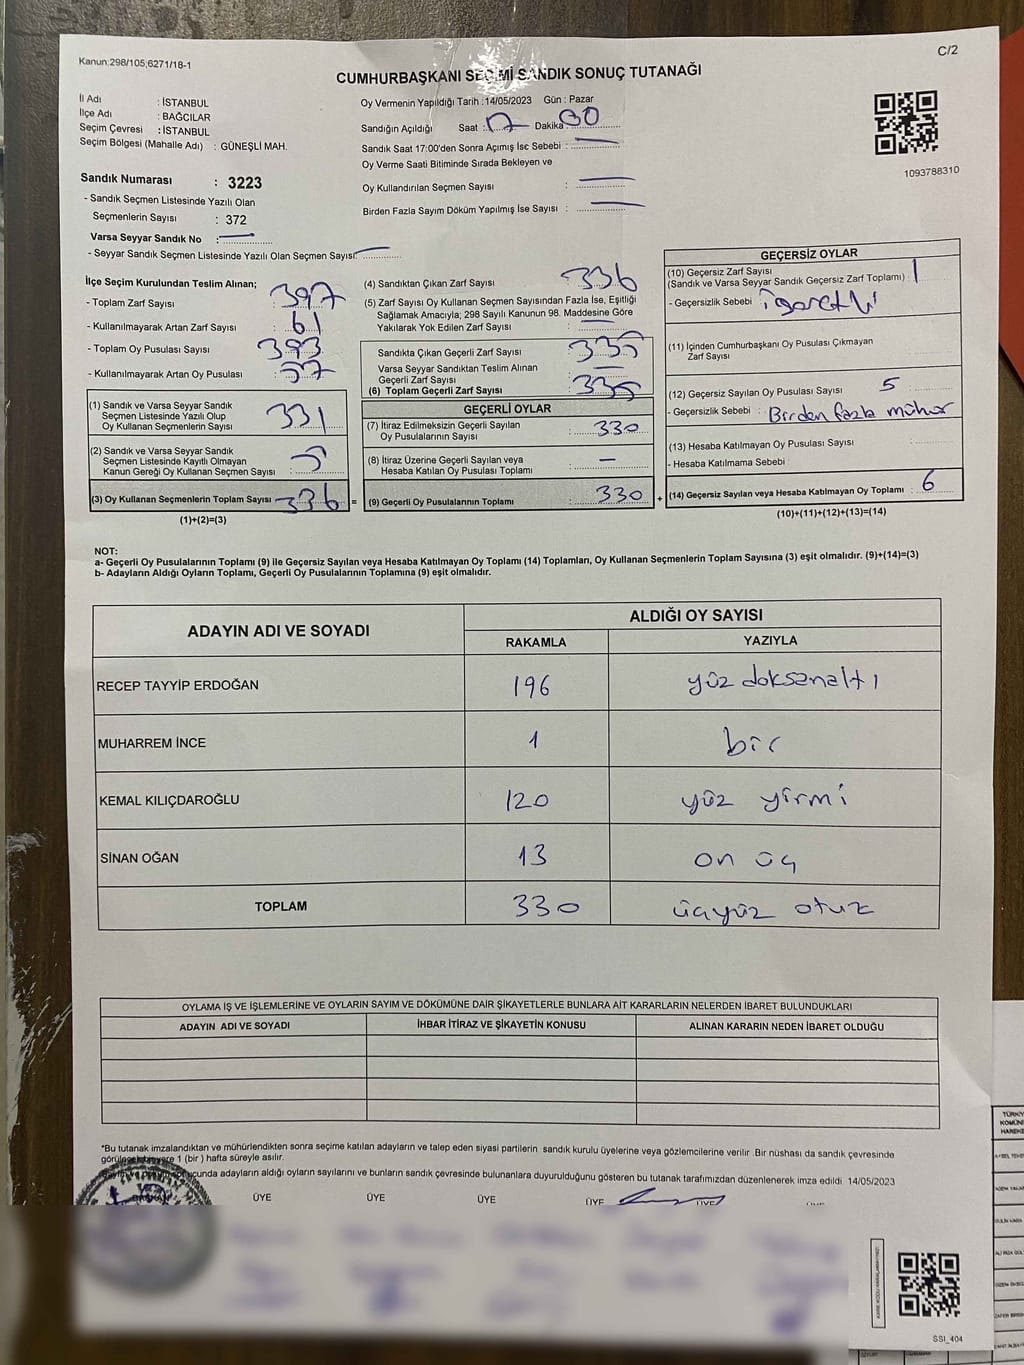 Kanun:298/105;6271/18-1
C/2
CUMHURBAŞKANI SEÇİMİ SANDIK SONUÇ TUTANAĞI
İl Adı : İSTANBUL
İlçe Adı : BAĞCILAR
Seçim Çevresi : İSTANBUL
Seçim Bölgesi (Mahalle Adı) : GÜNEŞLİ MAH.
Oy Vermenin Yapıldığı Tarih :14/05/2023 Gün : Pazar
Sandığın Açıldığı Saat : 17 Dakika : 00
Sandık Saat 17:00'den Sonra Açımış İse Sebebi :
Oy Verme Saati Bitiminde Sırada Bekleyen ve
Oy Kullandırılan Seçmen Sayısı :
Birden Fazla Sayım Döküm Yapılmış İse Sayısı :
1093788310
Sandık Numarası : 3223
- Sandık Seçmen Listesinde Yazılı Olan
Seçmenlerin Sayısı : 372
Varsa Seyyar Sandık No :
- Seyyar Sandık Seçmen Listesinde Yazılı Olan Seçmen Sayısı:
İlçe Seçim Kurulundan Teslim Alınan;
- Toplam Zarf Sayısı : 397
- Kullanılmayarak Artan Zarf Sayısı : 61
- Toplam Oy Pusulası Sayısı : 393
- Kullanılmayarak Artan Oy Pusulası : 57
(1) Sandık ve Varsa Seyyar Sandık
Seçmen Listesinde Yazılı Olup
Oy Kullanan Seçmenlerin Sayısı 331
(2) Sandık ve Varsa Seyyar Sandık
Seçmen Listesinde Kayıtlı Olmayan
Kanun Gereği Oy Kullanan Seçmen Sayısı 5
(3) Oy Kullanan Seçmenlerin Toplam Sayısı 336 =
(1)+(2)=(3)
(4) Sandıktan Çıkan Zarf Sayısı : 336
(5) Zarf Sayısı Oy Kullanan Seçmen Sayısından Fazla İse, Eşitliği
Sağlamak Amacıyla; 298 Sayılı Kanunun 98. Maddesine Göre
Yakılarak Yok Edilen Zarf Sayısı :
Sandıkta Çıkan Geçerli Zarf Sayısı : 335
Varsa Seyyar Sandıktan Teslim Alınan
Geçerli Zarf Sayısı :
(6) Toplam Geçerli Zarf Sayısı : 335
GEÇERLİ OYLAR
(7) İtiraz Edilmeksizin Geçerli Sayılan
Oy Pusulalarının Sayısı : 330
(8) İtiraz Üzerine Geçerli Sayılan veya
Hesaba Katılan Oy Pusulası Toplamı : —
(9) Geçerli Oy Pusulalarının Toplamı : 330 +
GEÇERSİZ OYLAR
(10) Geçersiz Zarf Sayısı
(Sandık ve Varsa Seyyar Sandık Geçersiz Zarf Toplamı) : 1
- Geçersizlik Sebebi : işaretli
(11) İçinden Cumhurbaşkanı Oy Pusulası Çıkmayan
Zarf Sayısı
(12) Geçersiz Sayılan Oy Pusulası Sayısı : 5
- Geçersizlik Sebebi : Birden fazla mühür
(13) Hesaba Katılmayan Oy Pusulası Sayısı :
- Hesaba Katılmama Sebebi :
(14) Geçersiz Sayılan veya Hesaba Katılmayan Oy Toplamı : 6
(10)+(11)+(12)+(13)=(14)
NOT:
a- Geçerli Oy Pusulalarının Toplamı (9) ile Geçersiz Sayılan veya Hesaba Katılmayan Oy Toplamı (14) Toplamları, Oy Kullanan Seçmenlerin Toplam Sayısına (3) eşit olmalıdır. (9)+(14)=(3)
b- Adayların Aldığı Oyların Toplamı, Geçerli Oy Pusulalarının Toplamına (9) eşit olmalıdır.
ADAYIN ADI VE SOYADI ALDIĞI OY SAYISI
RAKAMLA YAZIYLA
RECEP TAYYİP ERDOĞAN 196 yüz doksanaltı
MUHARREM İNCE 1 bir
KEMAL KILIÇDAROĞLU 120 yüz yirmi
SİNAN OĞAN 13 on üç
TOPLAM 330 üçyüz otuz
OYLAMA İŞ VE İŞLEMLERİNE VE OYLARIN SAYIM VE DÖKÜMÜNE DAİR ŞİKAYETLERLE BUNLARA AİT KARARLARIN NELERDEN İBARET BULUNDUKLARI
ADAYIN ADI VE SOYADI İHBAR İTİRAZ VE ŞİKAYETİN KONUSU ALINAN KARARIN NEDEN İBARET OLDUĞU
*Bu tutanak imzalandıktan ve mühürlendikten sonra seçime katılan adayların ve talep eden siyasi partilerin sandık kurulu üyelerine veya gözlemcilerine verilir .Bir nüshası da sandık çevresinde
yere 1 (bir ) hafta süreyle asılır.
ucunda adayların aldığı oyların sayılarını ve bunların sandık çevresinde bulunanlara duyurulduğunu gösteren bu tutanak tarafımızdan düzenlenerek imza edildi 14/05/2023
ÜYE ÜYE ÜYE ÜYE ÜYE
SSI_404
TÜRKİY
KOMÜNİ
HAREKE